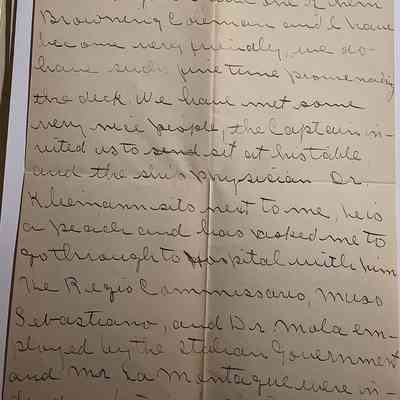 one of them
Browning Coleman and I have
become very friendly, we do
have such fine time promenading
the deck. We have met some
very nice people, the Captain in-
vited us to send sit at his table
and the ship's physician Dr.
Kleimann sits next to me, he is
a peach and has asked me to
go through to hospital with him
The Regio Commissario, Muso
Sebastiano, and Dr. Mola em-
ployed by the Italian Government
and Mr La Montague were in-